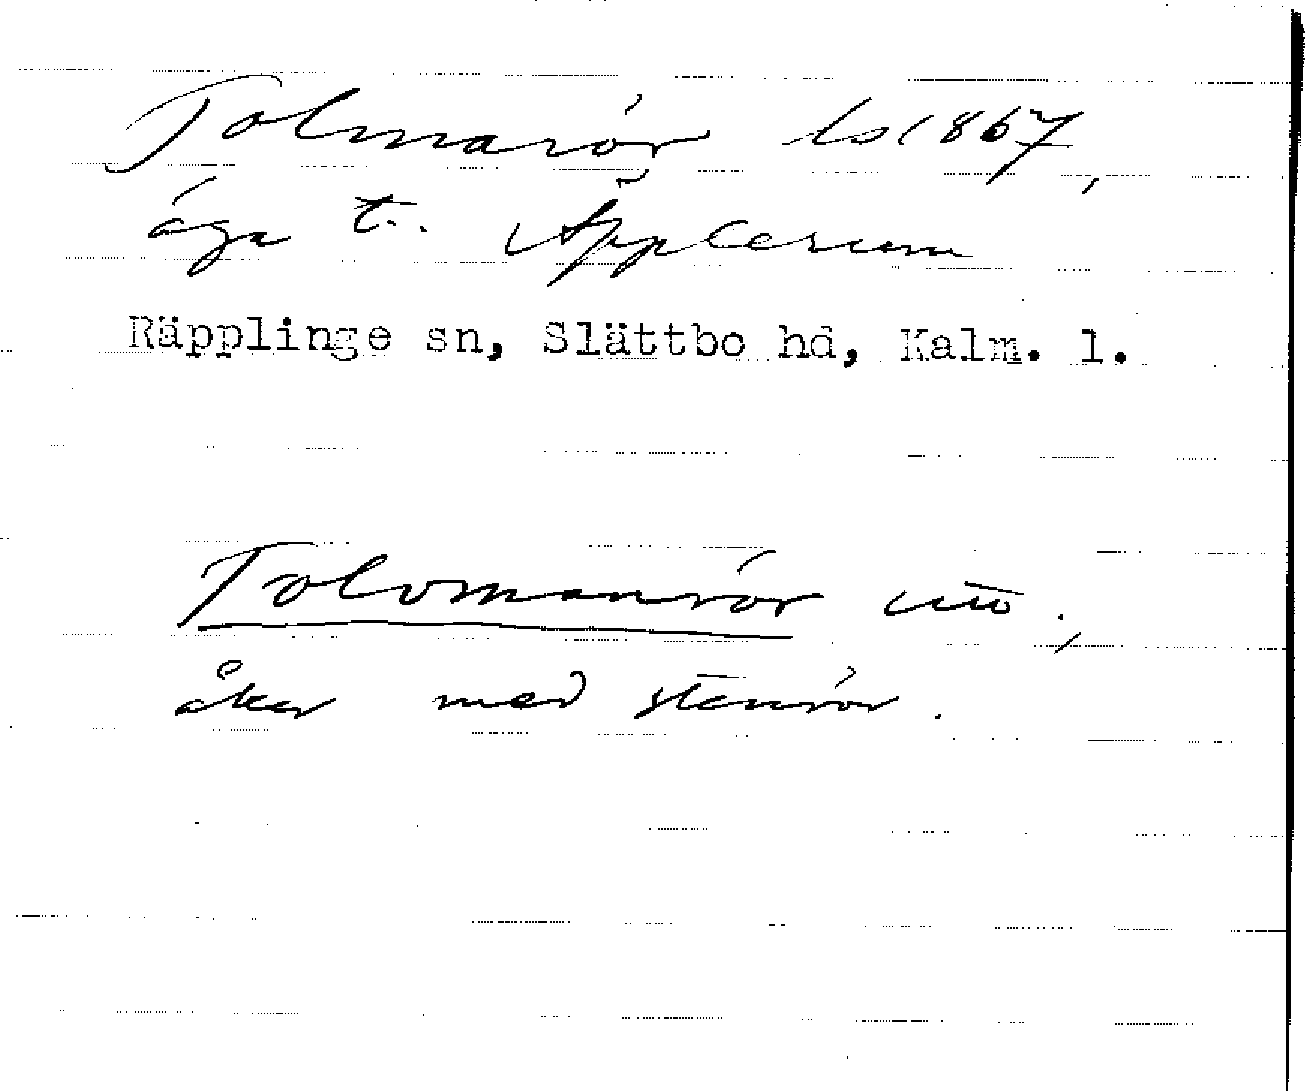 Tolmarör ls 1867,
äga t. Äpplerum
Räpplinge sn, Slättbo hd, Kalm. l.
Tolvmanrör utt.,
åker med stenrör.